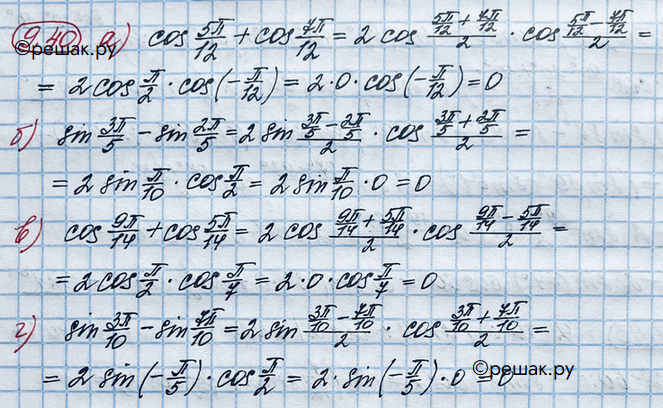 9.40 а) cos 5π/12 + cos 7π/12 = 2 cos (5π/12 + 7π/12)/2 · cos (5π/12 − 7π/12)/2 =
©решак.ру
= 2 cos π/2 · cos(−π/12) = 2·0·cos(−π/12) = 0
б) sin 3π/5 − sin 2π/5 = 2 sin (3π/5 − 2π/5)/2 · cos (3π/5 + 2π/5)/2 =
= 2 sin π/10 · cos π/2 = 2 sin π/10 · 0 = 0
в) cos 9π/14 + cos 5π/14 = 2 cos (9π/14 + 5π/14)/2 · cos (9π/14 − 5π/14)/2 =
= 2 cos π/2 · cos π/7 = 2·0·cos π/7 = 0
г) sin 3π/10 − sin 7π/10 = 2 sin (3π/10 − 7π/10)/2 · cos (3π/10 + 7π/10)/2 =
©решак.ру
= 2 sin(−π/5) · cos π/2 = 2·sin(−π/5)·0 = 0